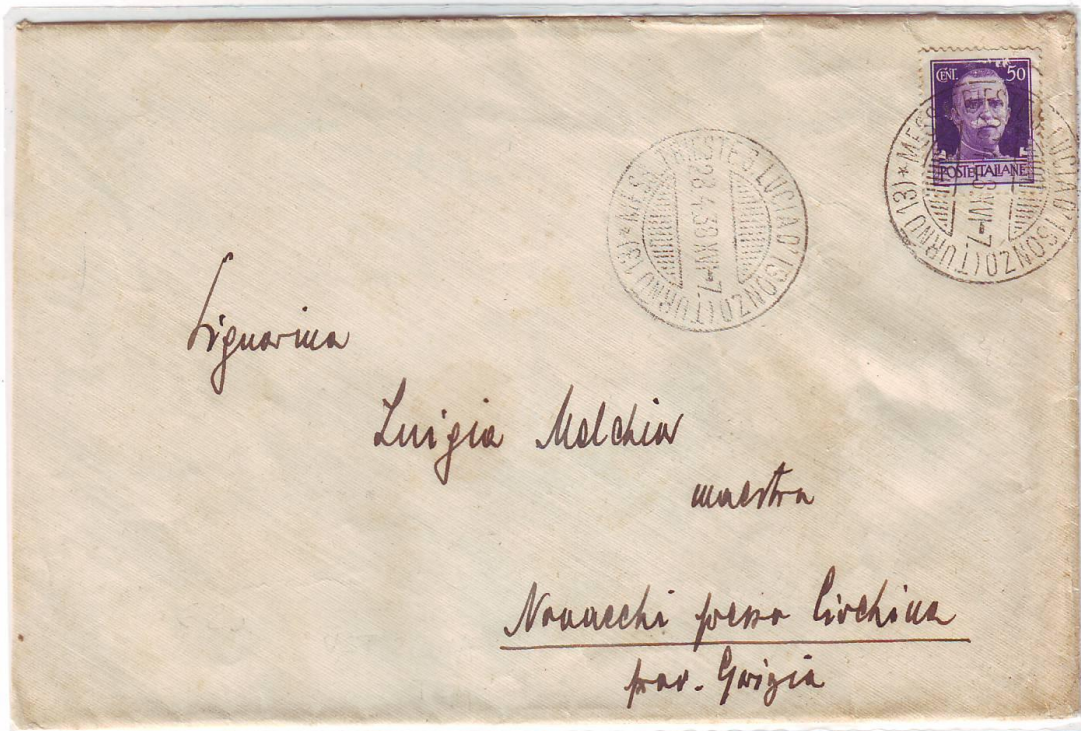 CENT. 50
POSTE ITALIANE
MESS. TRIESTE S. LUCIA D'ISONZO (TURNO 13) *
28.4.38 XVI-7
XVI-7
LUCIA D'ISONZO (TURNO 13) * MESS
Signorina
Luigia Melchior
maestra
Novacchi presso Circhina
prov. Gorizia